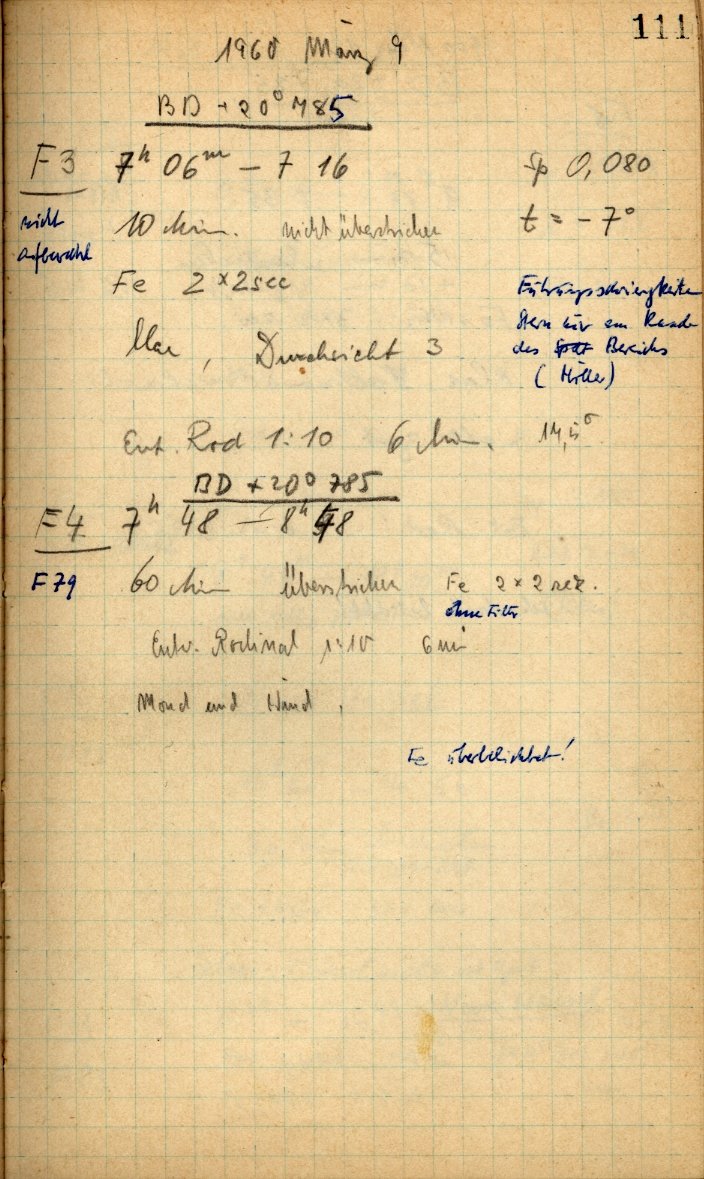 111
1960 März 9
BD + 20° 785
F3 7h 06m – 7 16 Sp 0,080
nicht aufbewahrt
10 Min. nicht überstrichen t = – 7°
Fe 2 x 2 sec
Führungsschwierigkeiten
Stern nur am Rande
des Spalt Bereichs
(Möller)
klar, Durchsicht 3
Ent. Rod 1:10 6 Min. 14,5°
BD + 20° 785
F4 7h 48 – 8h 48
F79 60 Min überstrichen Fe 2 x 2 sek.
ohne Filter
Entw. Rodinal 1:10 6 mi
Mond und Wind,
Fe überbelichtet!